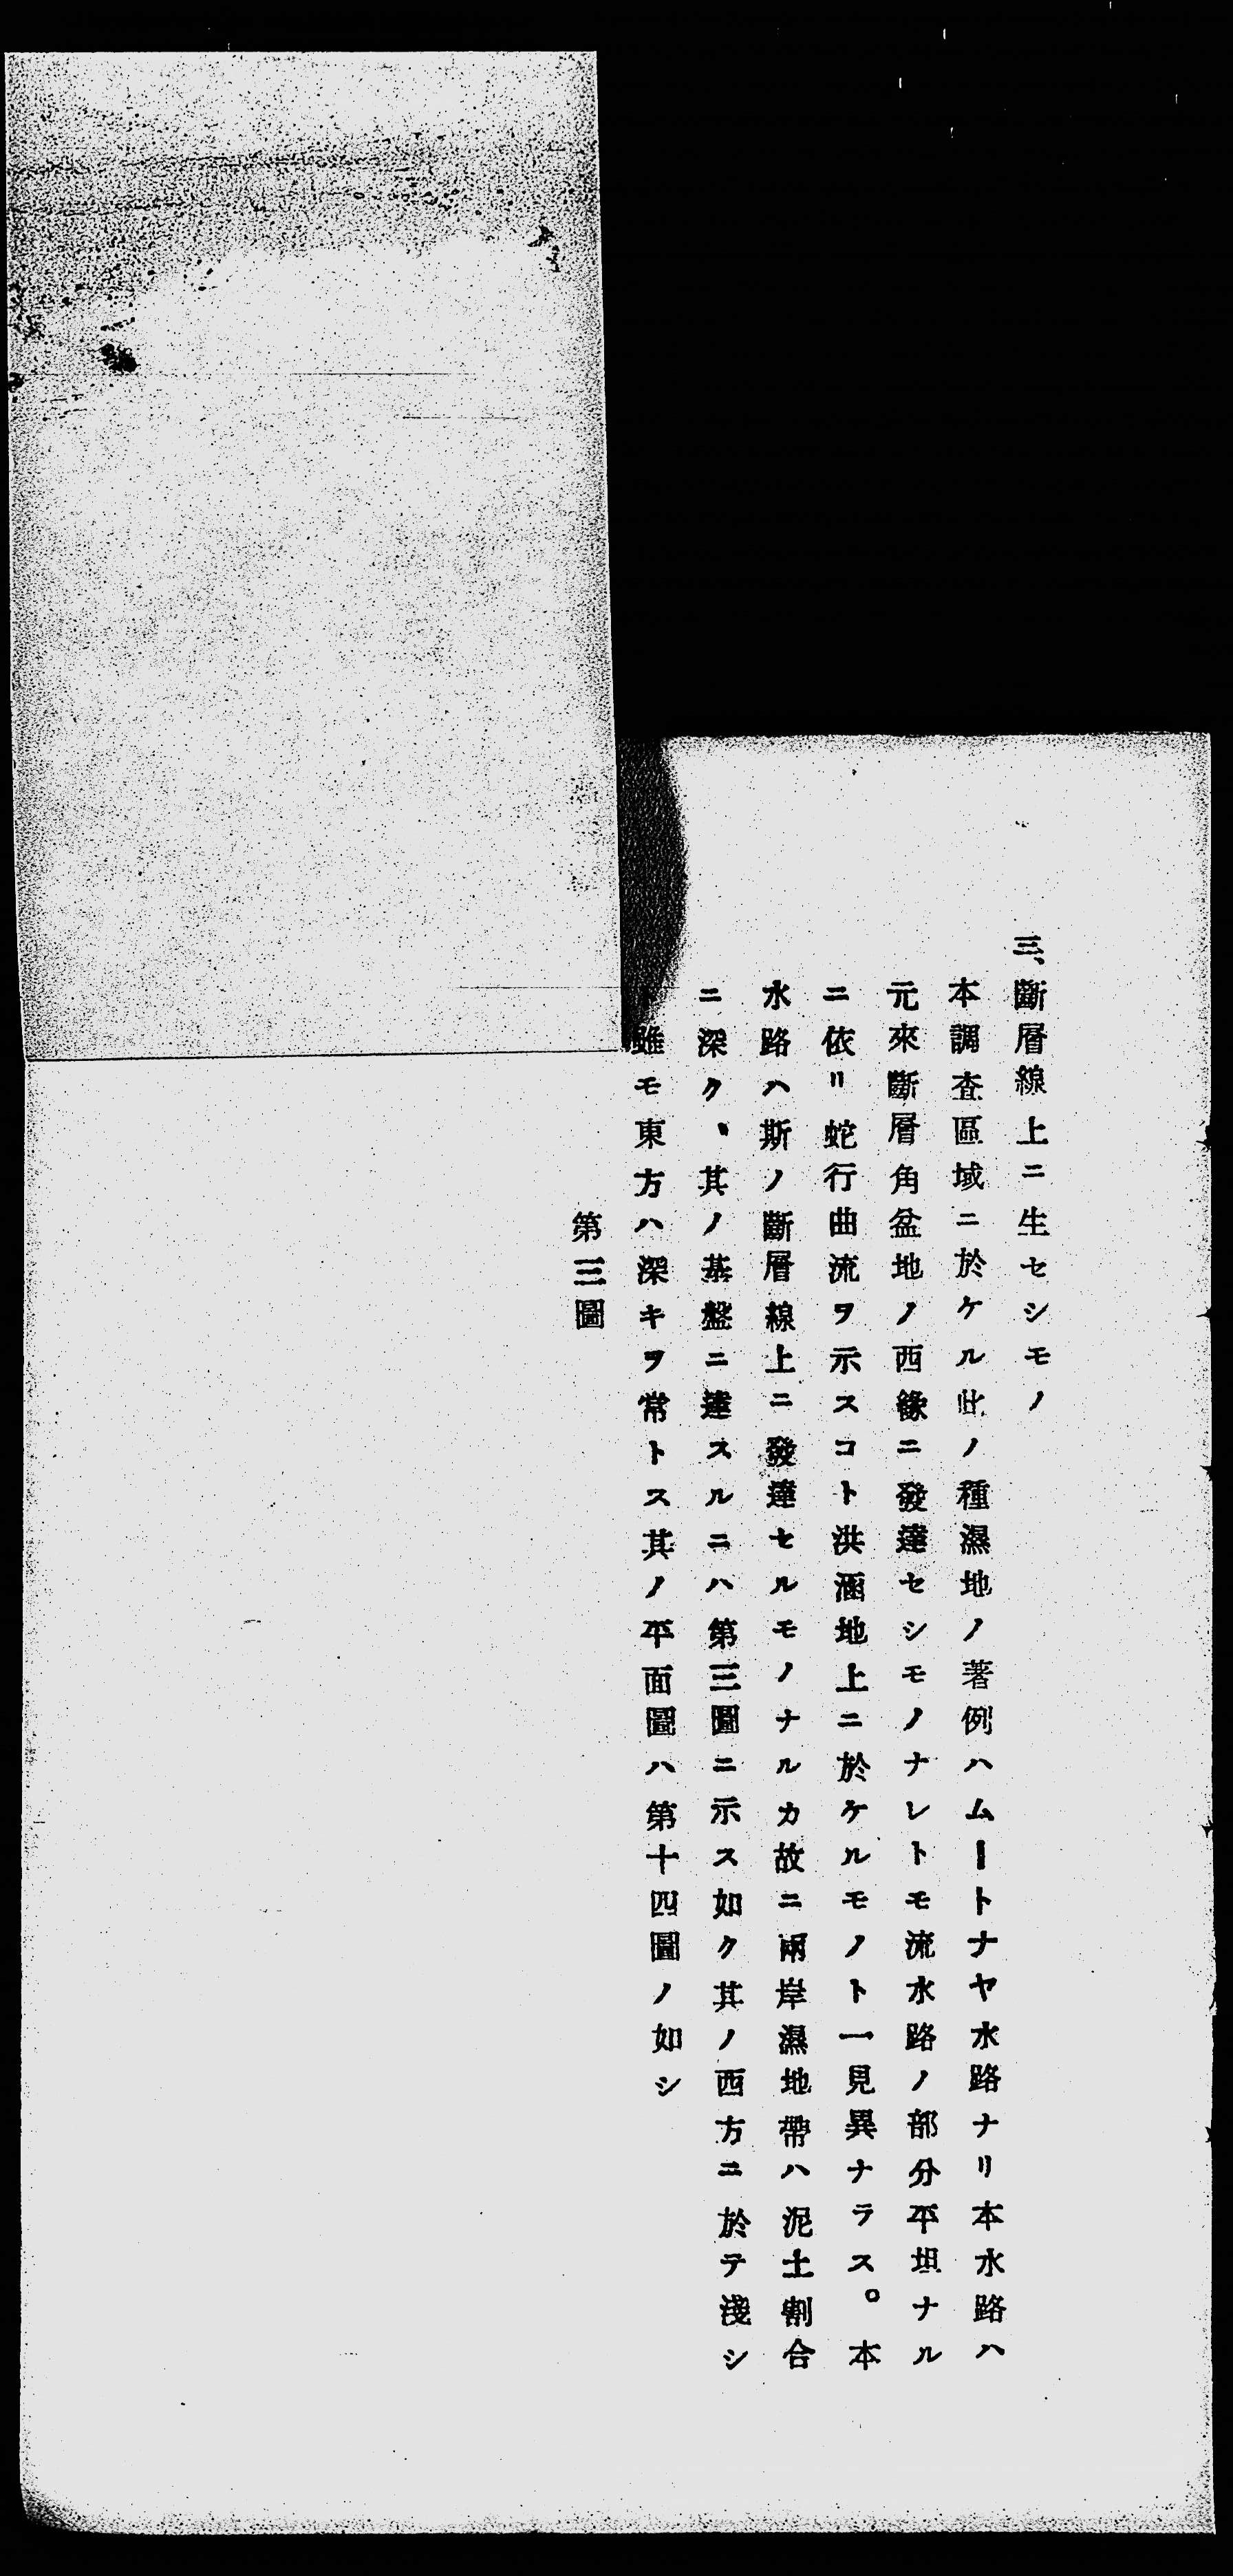 三、斷層線上ニ生セシモノ
本調査區域ニ於ケル此ノ種濕地ノ著例ハムートナヤ水路ナリ本水路ハ
元來斷層角盆地ノ西緣ニ發達セシモノナレトモ流水路ノ部分平坦ナル
ニ依リ蛇行曲流ヲ示スコト洪涵地上ニ於ケルモノト一見異ナラス。本
水路ハ斯ノ斷層線上ニ發達セルモノナルカ故ニ兩岸濕地帶ハ泥土割合
ニ深ク、其ノ基盤ニ達スルニハ第三圖ニ示ス如ク其ノ西方ニ於テ淺シ
雖モ東方ハ深キヲ常トス其ノ平面圖ハ第十四圖ノ如シ
第三圖